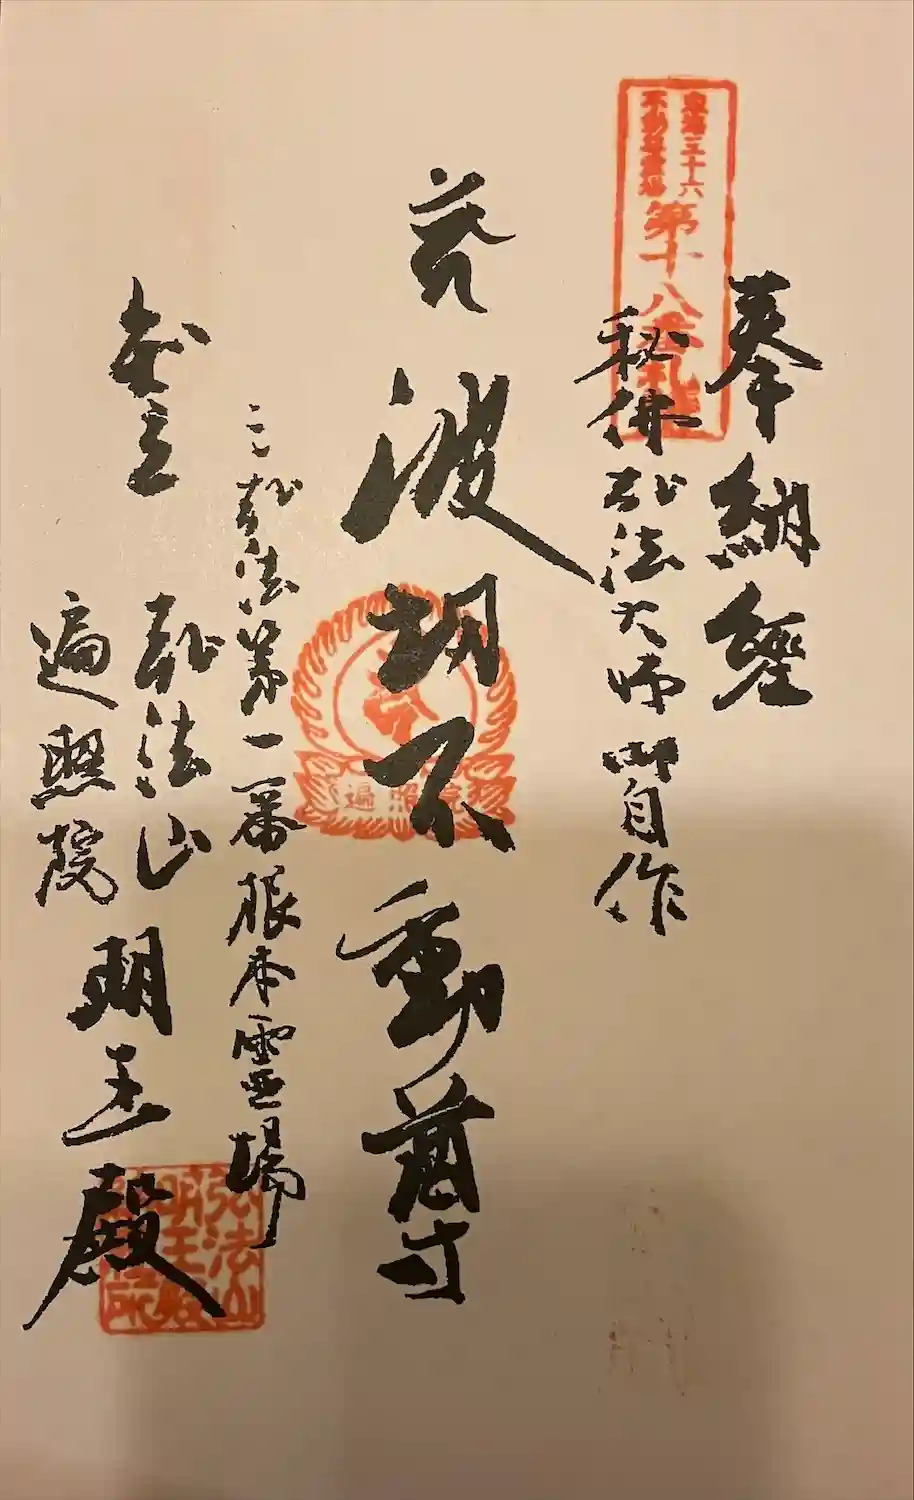 東海三十六
不動尊霊場
第十八番札所
奉納經
秘佛弘法大師御自作
芥波切不動尊
三弘法第一番根本霊場
弘法山
遍照院
明王殿
遍照院
弘法山
明王殿